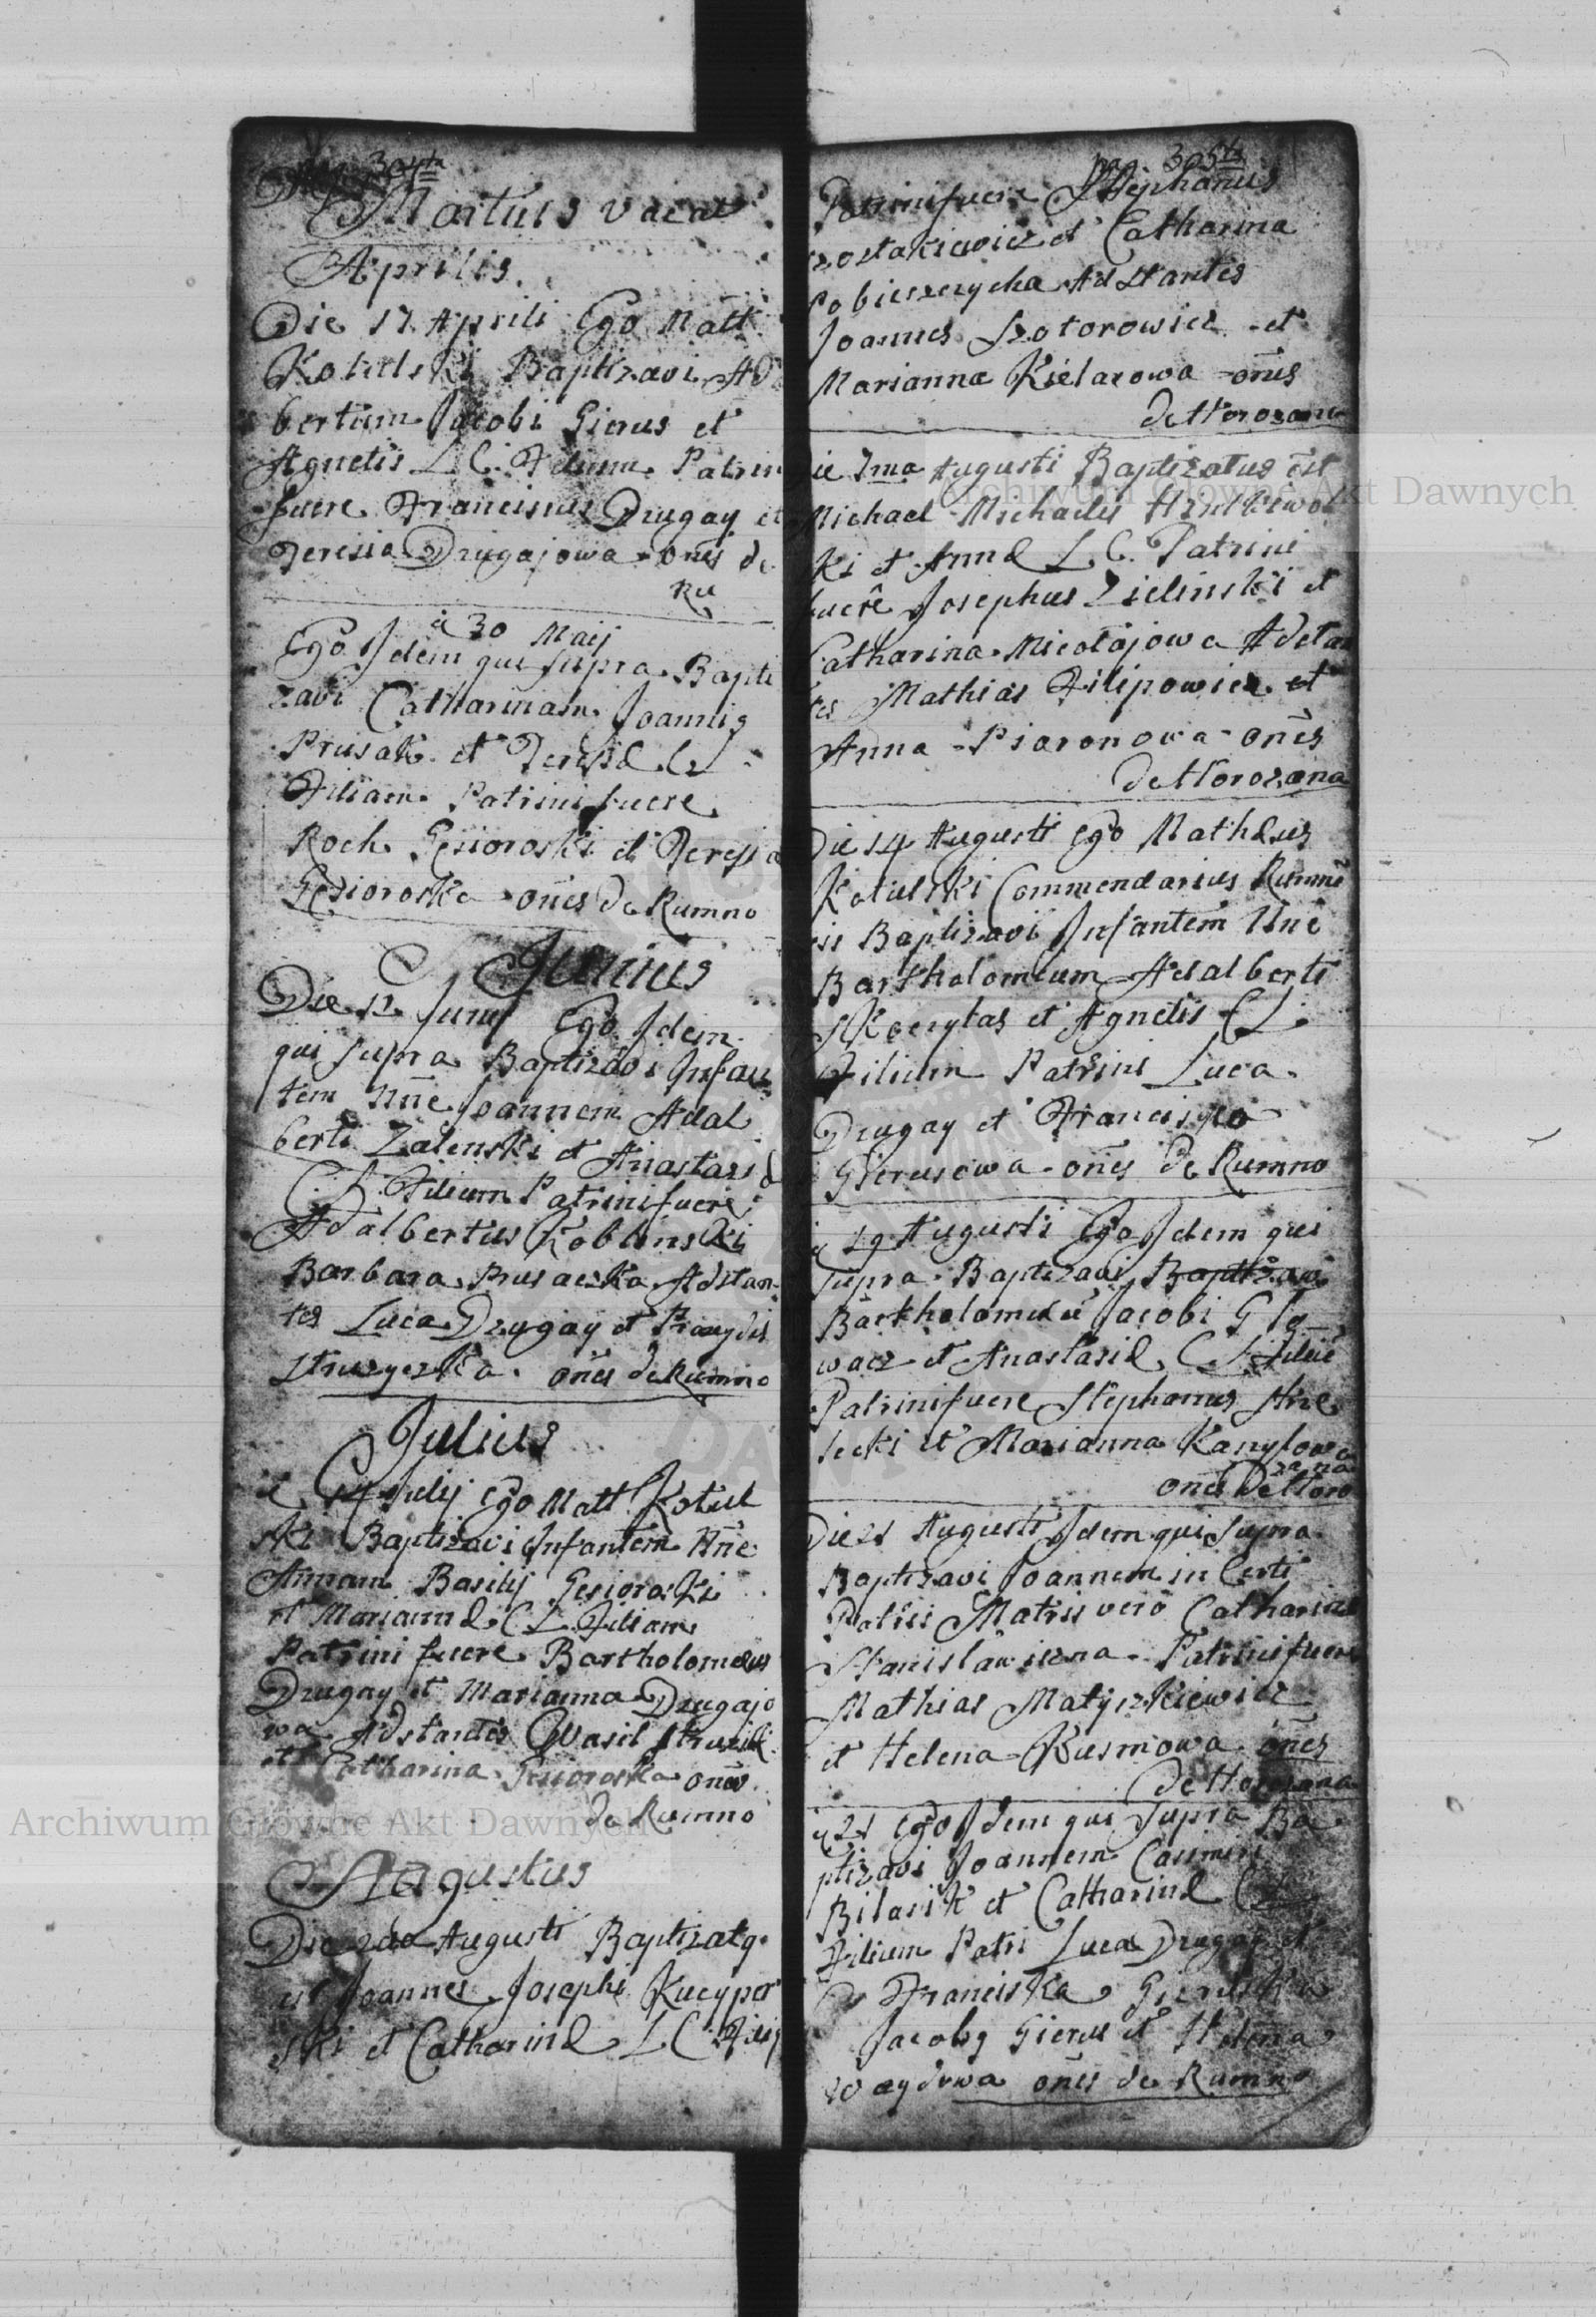 304ta
Martius vacat
Aprilis.
Die 17 Aprili Ego Matt
Kotulski Baptizavi Ad
bertum Jacobi Gierus et
Agnetis L. C. Filium. Patrin
fuere Franciscus Drugay et
Teresia Drugajowa omēs de
Ru
a 30 Maij
Ego Idem qui supra Bapti
zavi Catharinam Joannis
Prusak et Teresiæ CL
Filiam. Patrini fuere
Roch Gęsioroski et Teresia
Gęsioroska omēs de Rumno
Junius
Die 12 Junij Ego Idem
qui supra Baptizavi Infan
tem Nñe Joannem Adal
berti Zalenski et Anastasiæ
C. L. Filium Patrini fuere
Adalbertus Koblinski
Barbara Prusaczka Adstan
tes Luca Drugay et
omēs de Rumno
Julius
ie 14 Julij Ego Matt Kotul
ski Baptizavi Infantem Nñe
Annam Basilij Gesioroski
et Mariannæ C L Filiam
Patrini fuere Bartholomeus
Drugay et Marianna Drugajo
wa Adstantes Wasil
et Catharina Gesioroska omēs
de Rumno
Augustus
Die 2da Augusti Baptizatq
est Joannes Josephi Kucyper
ski et Catharinæ L C Filij
pag. 305ta
Patrini fuere Stephanus
et Catharina
Pobiereczycha Adstantes
Joannes Szotorowicz et
Marianna Kielarowa omēs
de Horozana
ie 7ma Augusti Baptizatus est
Michael Michaelis
ki et Annæ L. C. Patrini
fuerē Josephus Zielinski et
Catharina Micołajowa Adstan
tes Mathias Filipowicz et
Anna Piaronowa omēs
de Horozana
Die 14 Augusti Ego Mathæus
Kotulski Commendarius Rumnē
sis Baptizavi Infantem Nñe
Bartholomeum Adalberti
Skoczylas et Agnetis CL
Filium Patrini Luca
Drugay et Francisca
Gierusowa omēs de Rumno
19 Augusti Ego Idem qui
supra Baptizavi Baptizavi
Bartholomeū Jacobi Gło
wacz et Anastasiæ C L Filiū
Patrini fuere Stephanus
lecki et Marianna
omēs de Horo
zana
Die 21 Augusti Idem qui supra
Baptizavi Joannem in Certi
Patris Matris vero Catharinæ
Patrini fuere
Mathias Matyszkiewicz
et Helena Kusmowa omēs
de Horozana
21 Ego Idem qui supra Ba
ptizavi Joannem Casimiri
Bilasik et Catharinæ
Filium Patri Luca Drugay et
Franciska Gieruska
Jacobq Gierus et Helena
omēs de Rumno
Archiwum Główne Akt Dawnych
Archiwum Główne Akt Dawnych